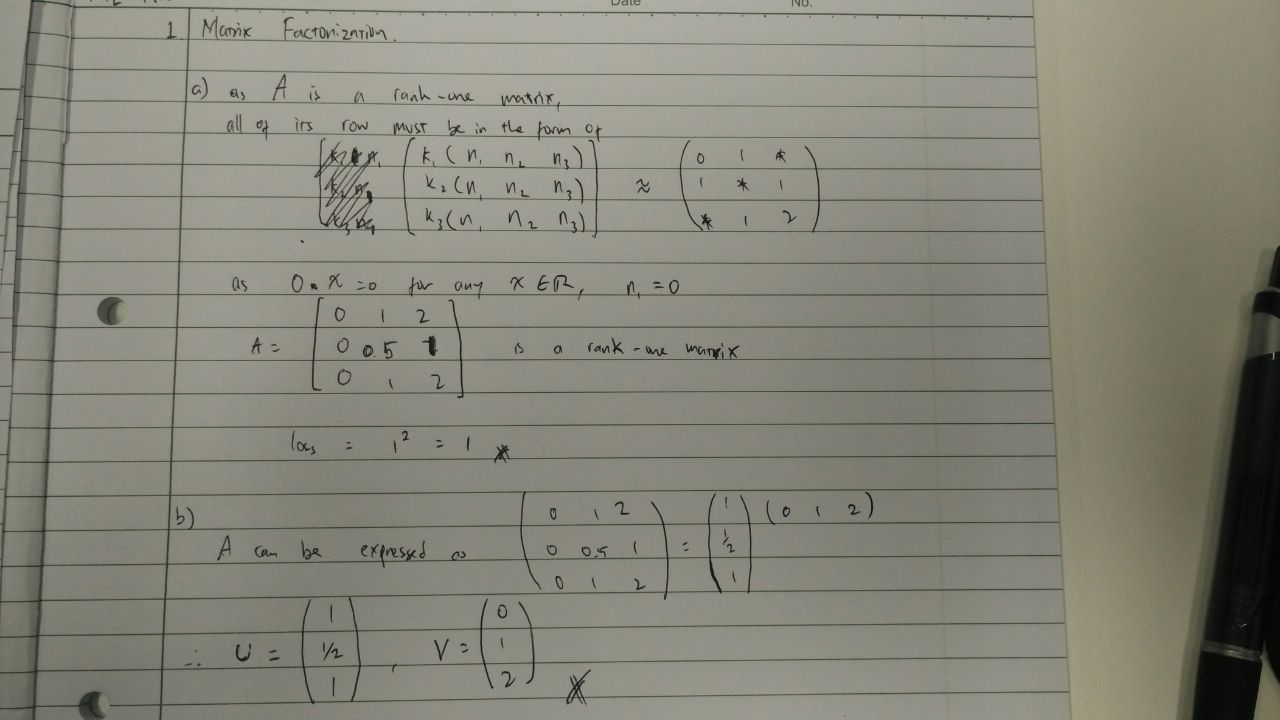 Date No.
1 Matrix Factorization.
a) as A is a rank-one matrix,
all of its row must be in the form of
[ k₁ ( n₁ n₂ n₃) ] ≈ ( 0 1 * )
[ k₂ (n₁ n₂ n₃) ] ( 1 * 1 )
[ k₃ (n₁ n₂ n₃) ] ( * 1 2 )
as 0 · x = 0 for any x ∈ ℝ, n₁ = 0
[ 0 1 2 ]
A = [ 0 0.5 1 ] is a rank-one matrix
[ 0 1 2 ]
loss = 1² = 1 *
b) ( 0 1 2 ) ( 1 ) (0 1 2)
A can be expressed as ( 0 0.5 1 ) = ( 1/2 )
( 0 1 2 ) ( 1 )
( 1 ) ( 0 )
∴ U = ( 1/2 ) , V = ( 1 )
( 1 ) ( 2 ) *